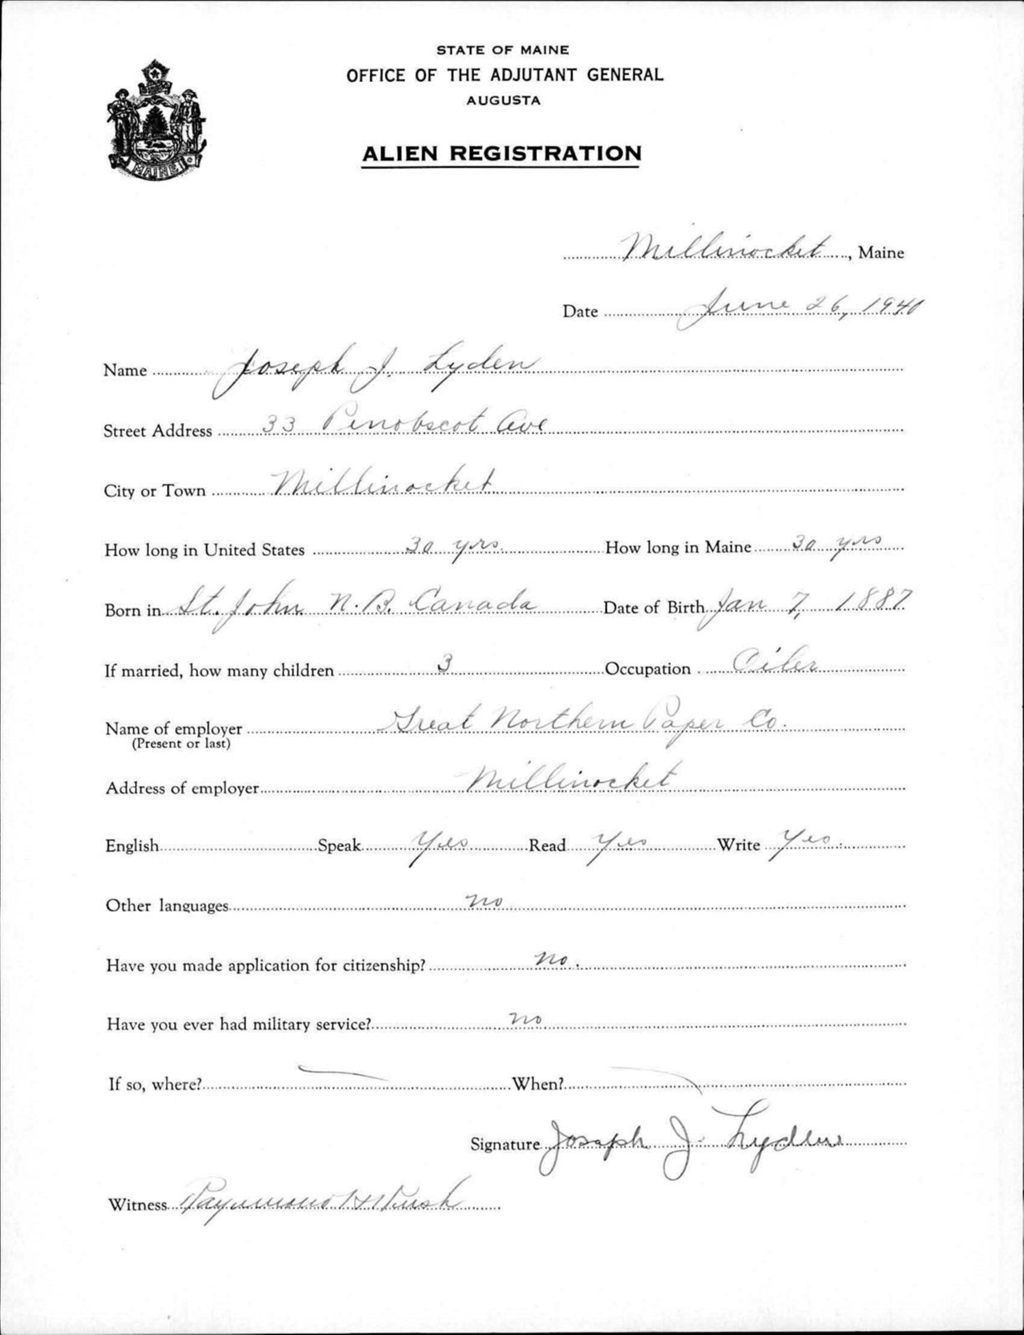 STATE OF MAINE
OFFICE OF THE ADJUTANT GENERAL
AUGUSTA
ALIEN REGISTRATION
MAINE
Millinocket, Maine
Date June 26, 1940
Name Joseph J. Lyden
Street Address 33 Penobscot Ave
City or Town Millinocket
How long in United States 30 yrs. How long in Maine 30 yrs
Born in St. John N.B. Canada Date of Birth Jan 7, 1887
If married, how many children 3 Occupation Oiler
Name of employer Great Northern Paper Co.
(Present or last)
Address of employer Millinocket
English Speak Yes Read Yes Write Yes.
Other languages no
Have you made application for citizenship? No.
Have you ever had military service? no
If so, where? — When? —
Signature Joseph J. Lyden
Witness Raymond H